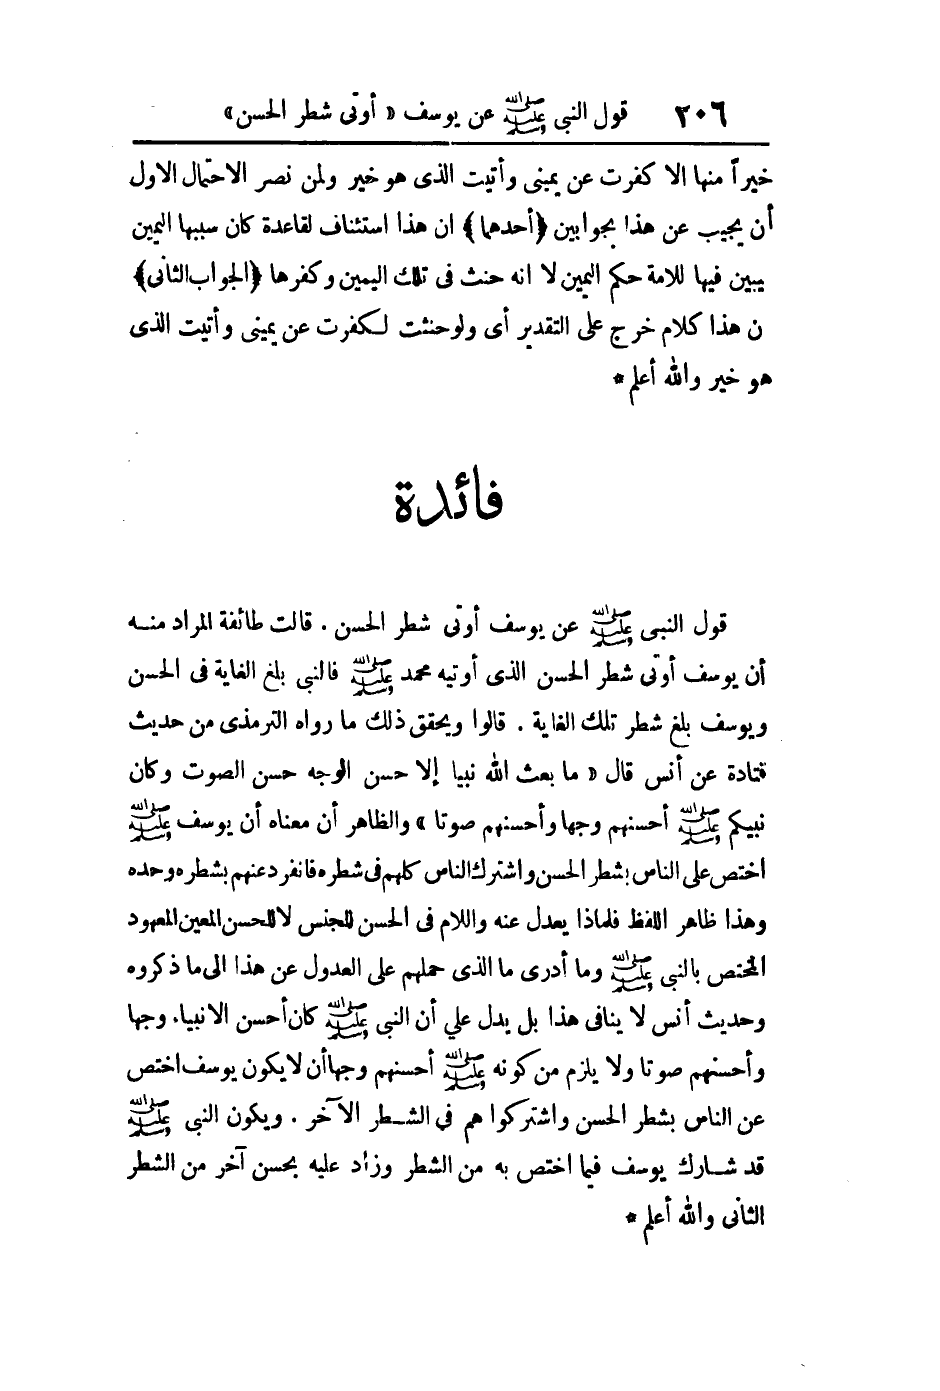 ٢٠٦ قول النبى ﷺ عن يوسف « أوتى شطر الحسن »
خيراً منها الا كفرت عن يمينى وأتيت الذى هو خير ولمن نصر الاحتمال الاول
أن يجيب عن هذا بجوابين ﴿أحدهما﴾ ان هذا استئناف لقاعدة كان سببها اليمين
يبين فيها للامة حكم اليمين لا انه حنث فى تلك اليمين وكفرها ﴿الجواب الثانى﴾
ن هذا كلام خرج على التقدير أى ولو حنثت لكفرت عن يمينى وأتيت الذى
هو خير والله أعلم *
فائدة
قول النبى ﷺ عن يوسف أوتى شطر الحسن . قالت طائفة المراد منه
أن يوسف أوتى شطر الحسن الذى أوتيه محمد ﷺ فالنبى بلغ الغاية فى الحسن
ويوسف بلغ شطر تلك الغاية . قالوا ويحقق ذلك ما رواه الترمذى من حديث
قتادة عن أنس قال « ما بعث الله نبيا إلا حسن الوجه حسن الصوت وكان
نبيكم ﷺ أحسنهم وجها وأحسنهم صوتا » والظاهر أن معناه أن يوسف ﷺ
اختص على الناس بشطر الحسن واشترك الناس كلهم فى شطره فانفرد عنهم بشطره وحده
وهذا ظاهر اللفظ فلماذا يعدل عنه واللام فى الحسن للجنس لا للحسن المعين المعهود
المختص بالنبى ﷺ وما أدرى ما الذى حملهم على العدول عن هذا الى ما ذكروه
وحديث أنس لا ينافى هذا بل يدل علي أن النبى ﷺ كان أحسن الانبياء وجها
وأحسنهم صوتا ولا يلزم من كونه ﷺ أحسنهم وجها أن لا يكون يوسف اختص
عن الناس بشطر الحسن واشتركوا هم في الشطر الآخر . ويكون النبي ﷺ
قد شارك يوسف فيما اختص به من الشطر وزاد عليه بحسن آخر من الشطر
الثانى والله أعلم *